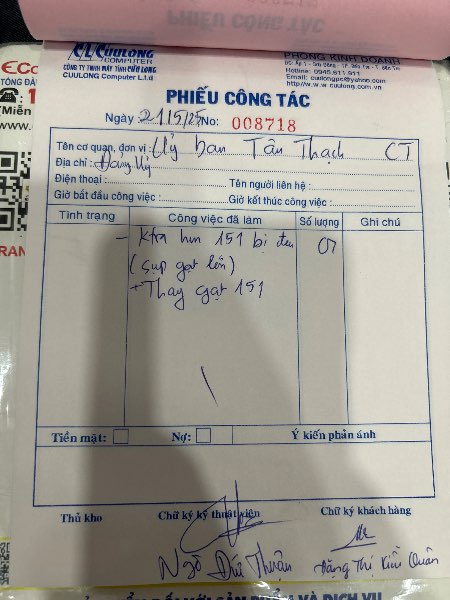 CUULONG
COMPUTER
CÔNG TY TNHH MÁY TÍNH CỬU LONG
CUULONG Computer L.t.d
PHÒNG KINH DOANH
Hotline: 0945.611.911
Email: cuulongpc@yahoo.com
http//w.w.w.cuulong.com.vn
PHIẾU CÔNG TÁC
Ngày: 21/5/25 No: 008718
Tên cơ quan, đơn vị: Uỷ ban Tân Thạch CT
Địa chỉ: Đảng Uỷ
Điện thoại: Tên người liên hệ:
Giờ bắt đầu công việc: Giờ kết thúc công việc:
Tình trạng Công việc đã làm Số lượng Ghi chú
- Ktra hm 151 bị đen 01
(sup gạt lớn)
+ Thay gạt 151
Tiền mặt: Nợ: Ý kiến phản ánh
Thủ kho Chữ ký kỹ thuật viên Chữ ký khách hàng
Ngô Đức Thuận Đặng Thị Kiều Quân